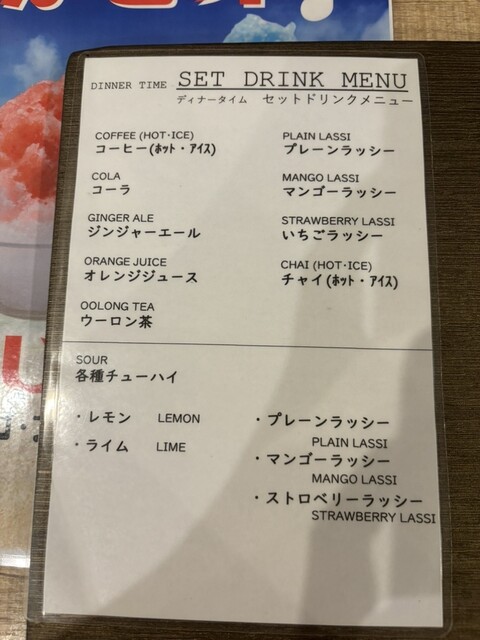 DINNER TIME SET DRINK MENU
ディナータイム セットドリンクメニュー
COFFEE (HOT･ICE)
コーヒー(ﾎｯﾄ・ｱｲｽ)
COLA
コーラ
GINGER ALE
ジンジャーエール
ORANGE JUICE
オレンジジュース
OOLONG TEA
ウーロン茶
PLAIN LASSI
プレーンラッシー
MANGO LASSI
マンゴーラッシー
STRAWBERRY LASSI
いちごラッシー
CHAI (HOT･ICE)
チャイ(ﾎｯﾄ・ｱｲｽ)
SOUR
各種チューハイ
・レモン LEMON
・ライム LIME
・プレーンラッシー
PLAIN LASSI
・マンゴーラッシー
MANGO LASSI
・ストロベリーラッシー
STRAWBERRY LASSI